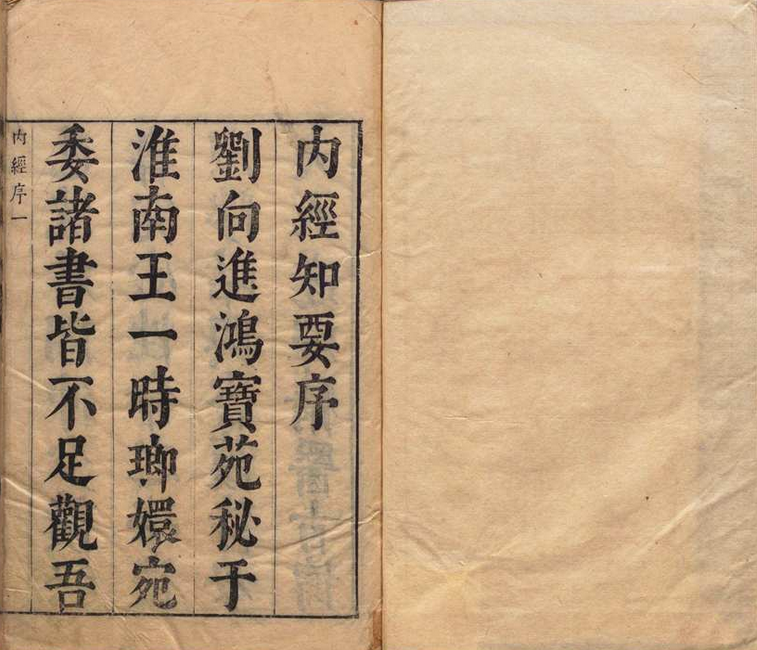 內經知要序
劉向進鴻寶苑秘于
淮南王一時瑯嬛宛
委諸書皆不足觀吾
內經序一